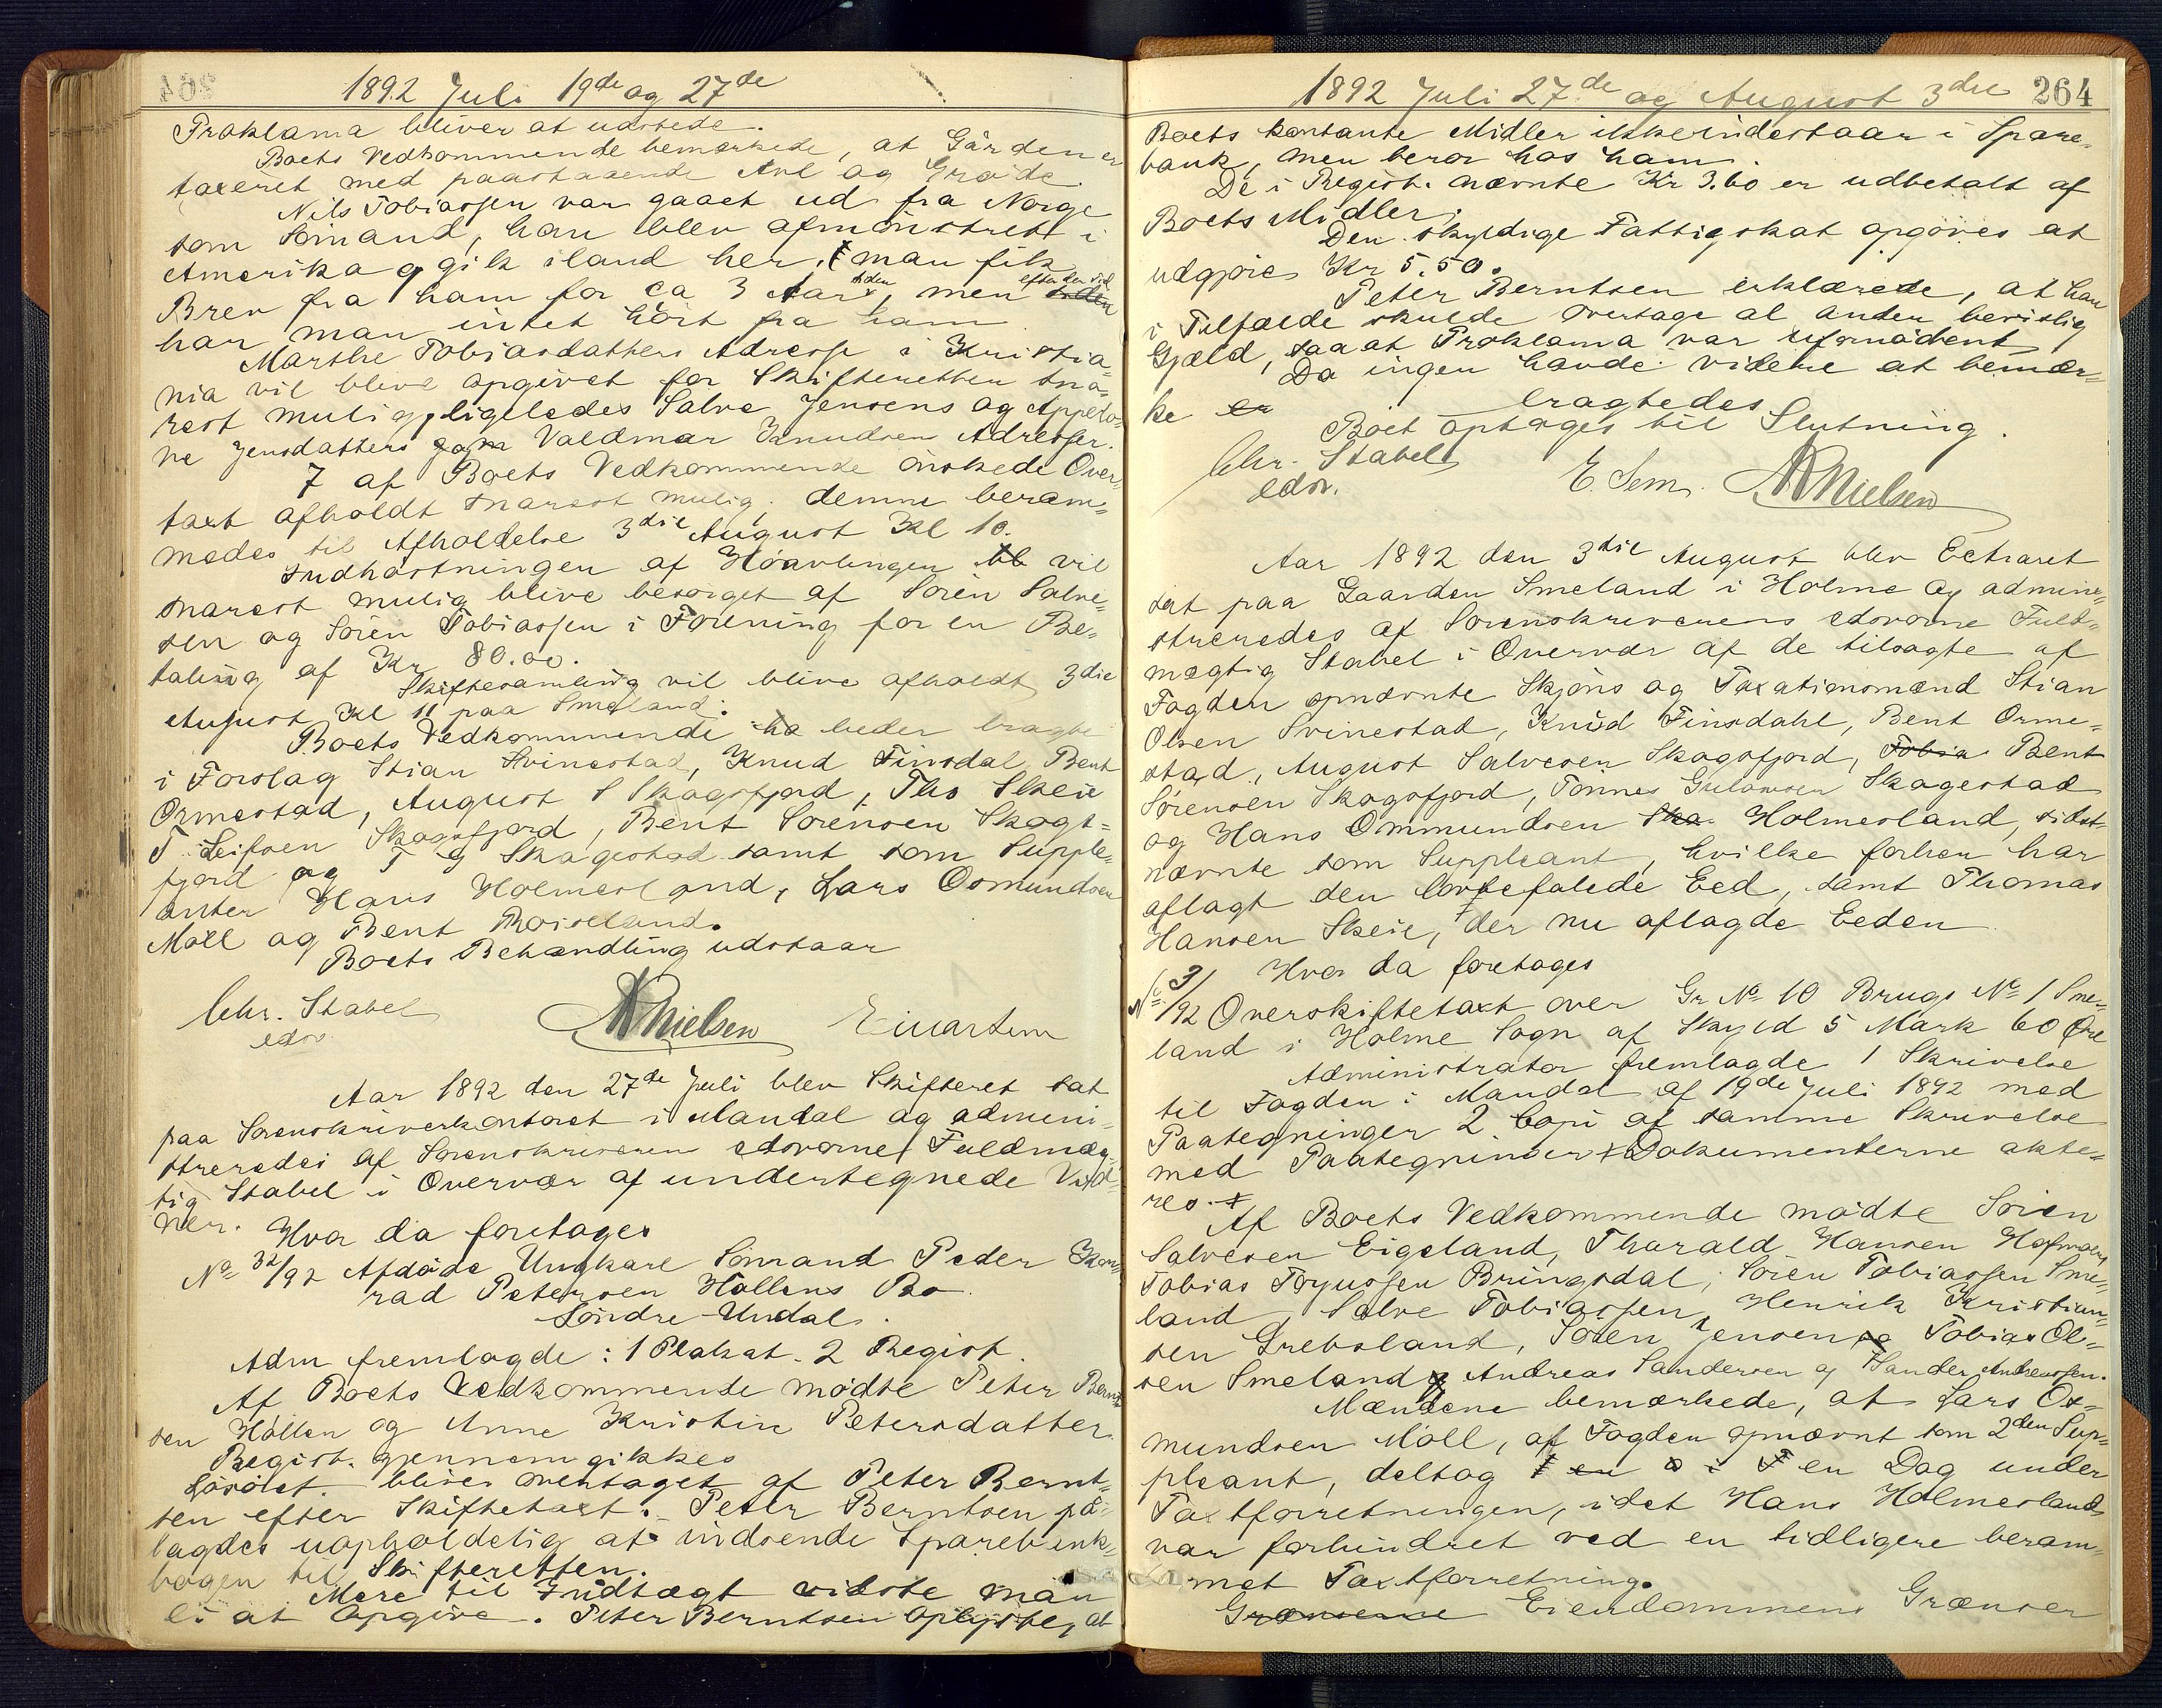 1892 Juli 19de og 27de
Proklama bliver at udstede.
Boets Vedkommende bemærkede, at Gården er
taxeret med paastaaende Avl og Grøde.
Nils Tobiassen var gaaet ud fra Norge
som Sømand, han blev afmønstret i
Amerika og gik iland her, man fik
Brev fra ham for ca 3 Aar siden, men efter den tid
har man intet hørt fra ham
Marthe Tobiasdatters Adresse i Kristia-
nia vil blive opgivet for Skifteretten sna-
rest mulig, ligeledes Salve Jensens og Appelo-
ne Jensdatters Valdmar Knudsen Adresser.
7 af Boets Vedkommende ønskede Over-
taxt afholdt snarest mulig, denne beram-
medes til Afholdelse 3die August Kl 10.
Indhøstningen af Høavlingen vil
snarest mulig blive besørget af Søren Salve-
sen og Søren Tobiassen i Forening for en Be-
taling af Kr 80.00.
Skiftesamling vil blive afholdt 3die
August Kl 11 paa Smeland.
Boets Vedkommende beder bragt
i Forslag Stian Svinestad, Knud Finsdal, Bent
Ormestad, August S Skagsfjord, Ths Skeie
T Leifsen Skogsfjord, Bent Sørensen Skogs-
fjord og T G Skagestad samt som Supple-
anter Hans Holmesland, Lars Osmundsen
Møll og Bent Røiseland.
Boets Behandling udstaar
Chr. Stabel
edsv
NNielsen
Eivart Sem
Aar 1892 den 27de Juli blev Skifteret sat
paa Sorenskriverkontoret i Mandal og admini-
streredes af Sorenskriverens edsvorne Fuldmæg-
tig Stabel i Overvær af undertegnede Vid-
ner. Hvor da foretages
No 32/92 Afdøde Ungkarl Sømand Peder Kon-
rad Petersen Hållens Bo
Søndre-Undal.
Adm fremlagde: 1 Plakat. 2 Regist.
Af Boets Vedkommende mødte Peter Bernt-
sen Hållen og Anne Kristine Petersdatter.
Regist. gjennemgikkes
Løsøret. bliver overtaget af Peter Bernt-
sen efter Skiftetaxt. Peter Berntsen på-
lagdes uopholdelig at indsende Sparebank-
bogen til Skifteretten.
Mere til Indtægt vidste man
ei at opgive. Peter Berntsen oplyste, at
1892 Juli 27de og August 3die 264
Boets kontante Midler ikke indestaar i Spare-
bank, men beror hos ham.
De i Regist. nævnte Kr 3.60 er udbetalt af
Boets Midler.
Den skyldige Fattigskat opgives at
udgjøre Kr 5.50.
Peter Berntsen erklærede, at han
i Tilfælde skulde overtage al anden bevislig
Gjæld, saaat Proklama var ufornødent
Da ingen havde videre at bemær-
ke er bragtedes
Boet optages til Slutning.
Chr. Stabel
edsv.
E. Sem. NNielsen
Aar 1892 den 3die August blev Extraret
sat paa Gaarden Smeland i Holme og admini-
streredes af Sorenskriverens edsvorne Fuld-
mægtig Stabel i Overvær af de tilsagte af
Fogden opnævnte Skjøns og Taxationsmænd Stian
Olsen Svinestad, Knud Finsdahl, Bent Orme-
stad, August Salvesen Skogsfjord, Bent
Sørensen Skogsfjord, Tønnes Gulovsen Skagestad
og Hans Ommundsen Holmesland, sidst-
nævnte som Suppleant, hvilke forhen har
aflagt den lovbefalede Eed, samt Thomas
Hansen Skeie, der nu aflagde Eeden
Hvor da foretages
No 3/92 Overskiftetaxt over Gr No 10 Brugs No 1 Sme-
land i Holme Sogn af Skyld 5 Mark 60 Øre
Administrator fremlagde 1 Skrivelse
til Fogden i Mandal af 19de Juli 1892 med
Paategninger 2 Copi af samme Skrivelse
med Paategninger Dokumenterne akte-
res.
Af Boets Vedkommende mødte Søren
Salvesen Eigeland, Tharald Hansen
Tobias Torjussen Bringsdal, Søren Tobiassen Sme-
land, Salve Tobiassen, Henrik Kristian-
sen Grebsland, Søren Jensen Tobias Ol-
sen Smeland Andreas Sandersen og Sander Andreassen.
Mændene bemærkede, at Lars Os-
mundsen Møll, af Fogden opnævnt som 2den Sup-
pleant, deltog en Dag under
Taxtforretningen, idet Hans Holmesland
var forhindret ved en tidligere beram-
met Taxtforretning.
Grændserne Eiendommens Grænser